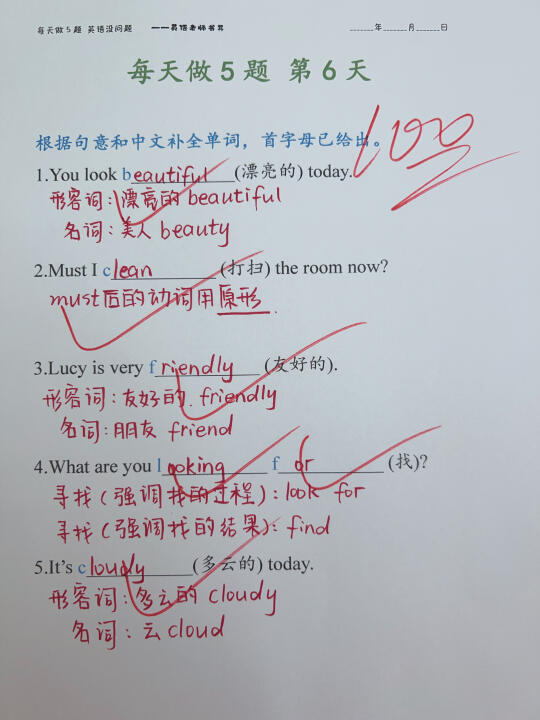 每天做5题 英语没问题 ——英语老师书写 ______年______月______日
每天做5题 第6天
根据句意和中文补全单词，首字母已给出。
100
1.You look beautiful (漂亮的) today.
形容词:漂亮的 beautiful
名词:美人 beauty
2.Must I clean (打扫) the room now?
must后的动词用原形.
3.Lucy is very friendly (友好的).
形容词:友好的. friendly
名词:朋友 friend
4.What are you looking for (找)?
寻找(强调找的过程):look for
寻找(强调找的结果):find
5.It's cloudy (多云的) today.
形容词:多云的 cloudy
名词:云 cloud